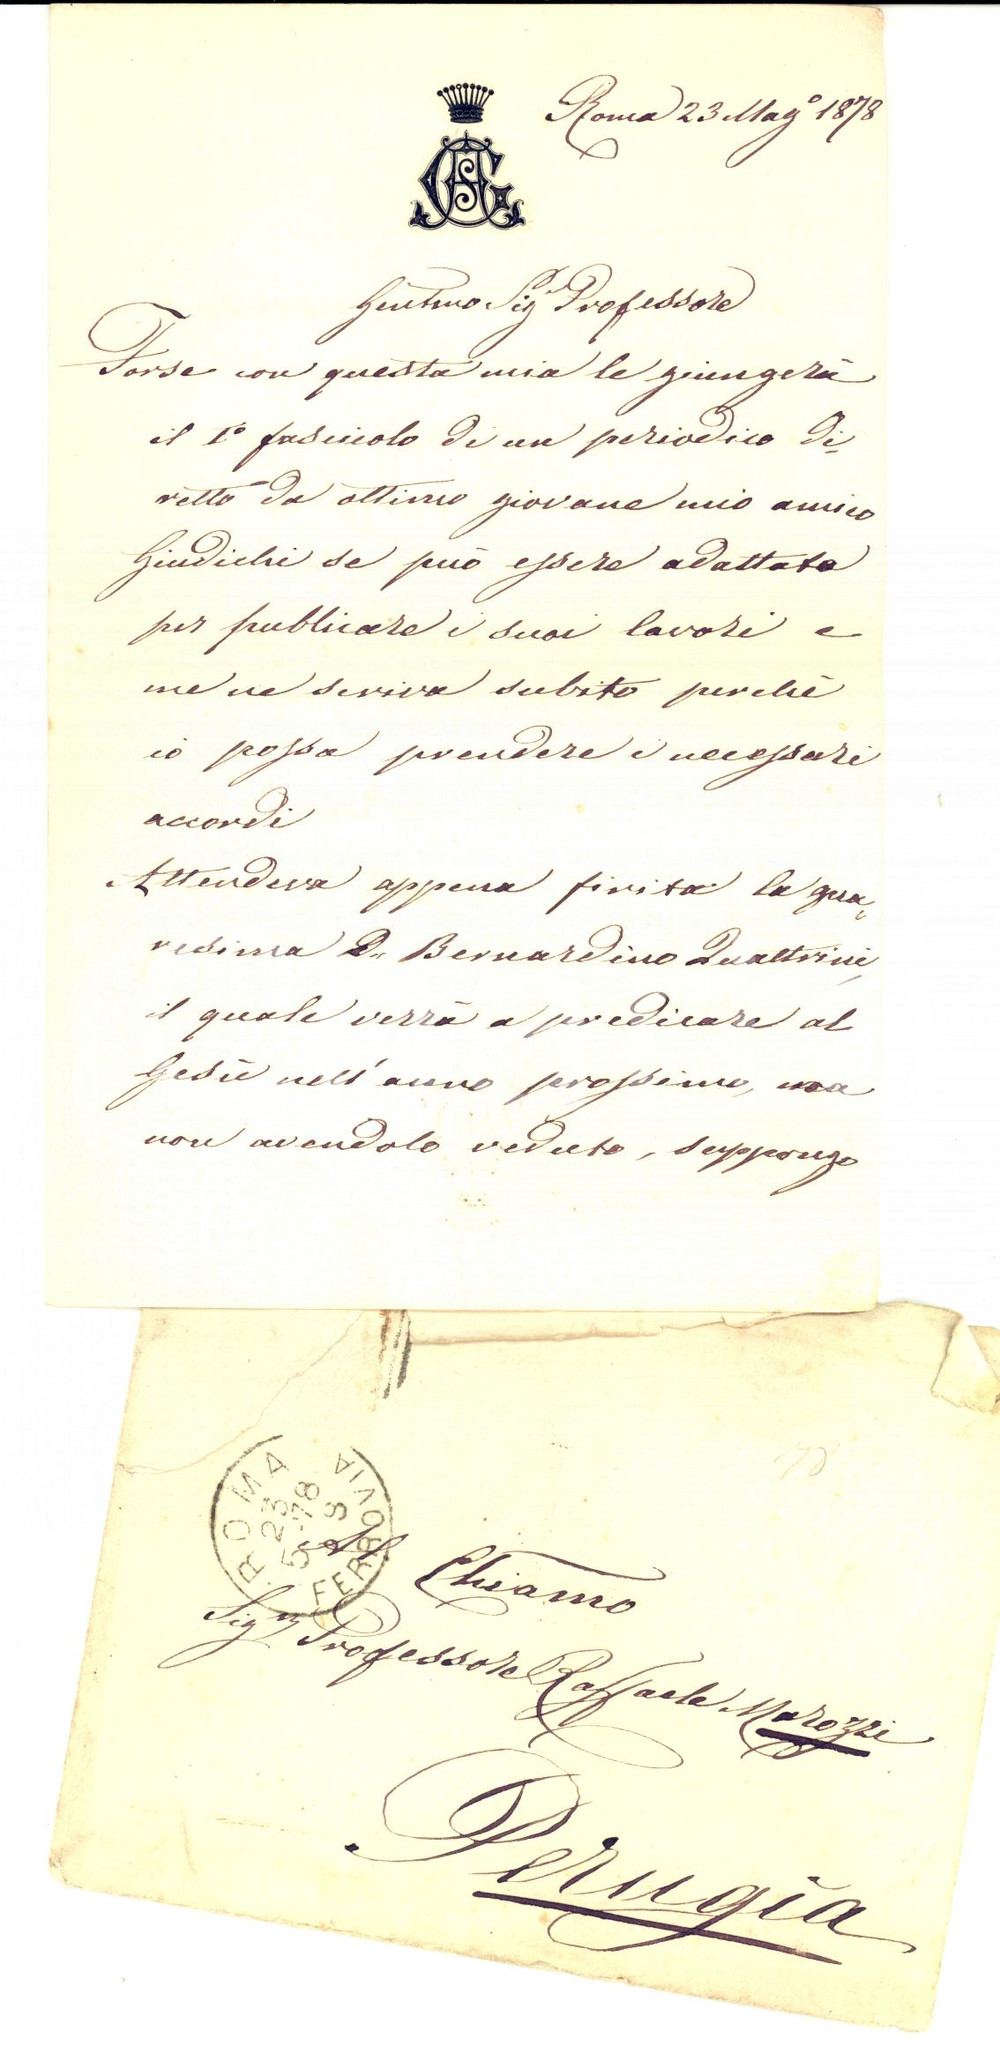 Roma 23 Mag° 1878
Gentmo Sigr Professore
Forse con questa mia le giungerà
il 1° fascicolo di un periodico di-
retto da ottimo giovane mio amico
Giudichi se può essere adattato
per publicare i suoi lavori e
me ne scriva subito perchè
io possa prendere i necessari
accordi
Attendeva appena finita la qua-
resima D. Bernardino Quattrini,
il quale verrà a predicare al
Gesù nell'anno prossimo, ma
non avendolo veduto, suppongo
ROMA FERROVIA
23
5-78
8 S
Al Chiamo
Sigr Professore Raffaele Marozzi
Perugia